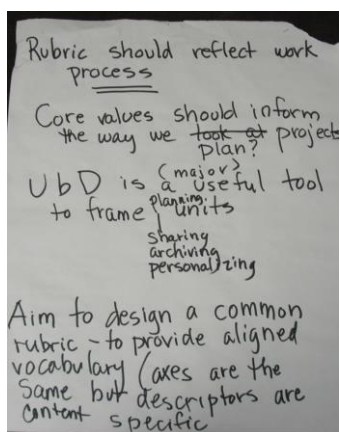 Rubric should reflect work
process
Core values should inform
the way we took at projects
plan?
UbD is a useful tool
(major)
to frame units
planning
sharing
archiving
personalizing
Aim to design a common
rubric - to provide aligned
vocabulary (axes are the
same but descriptors are
content specific